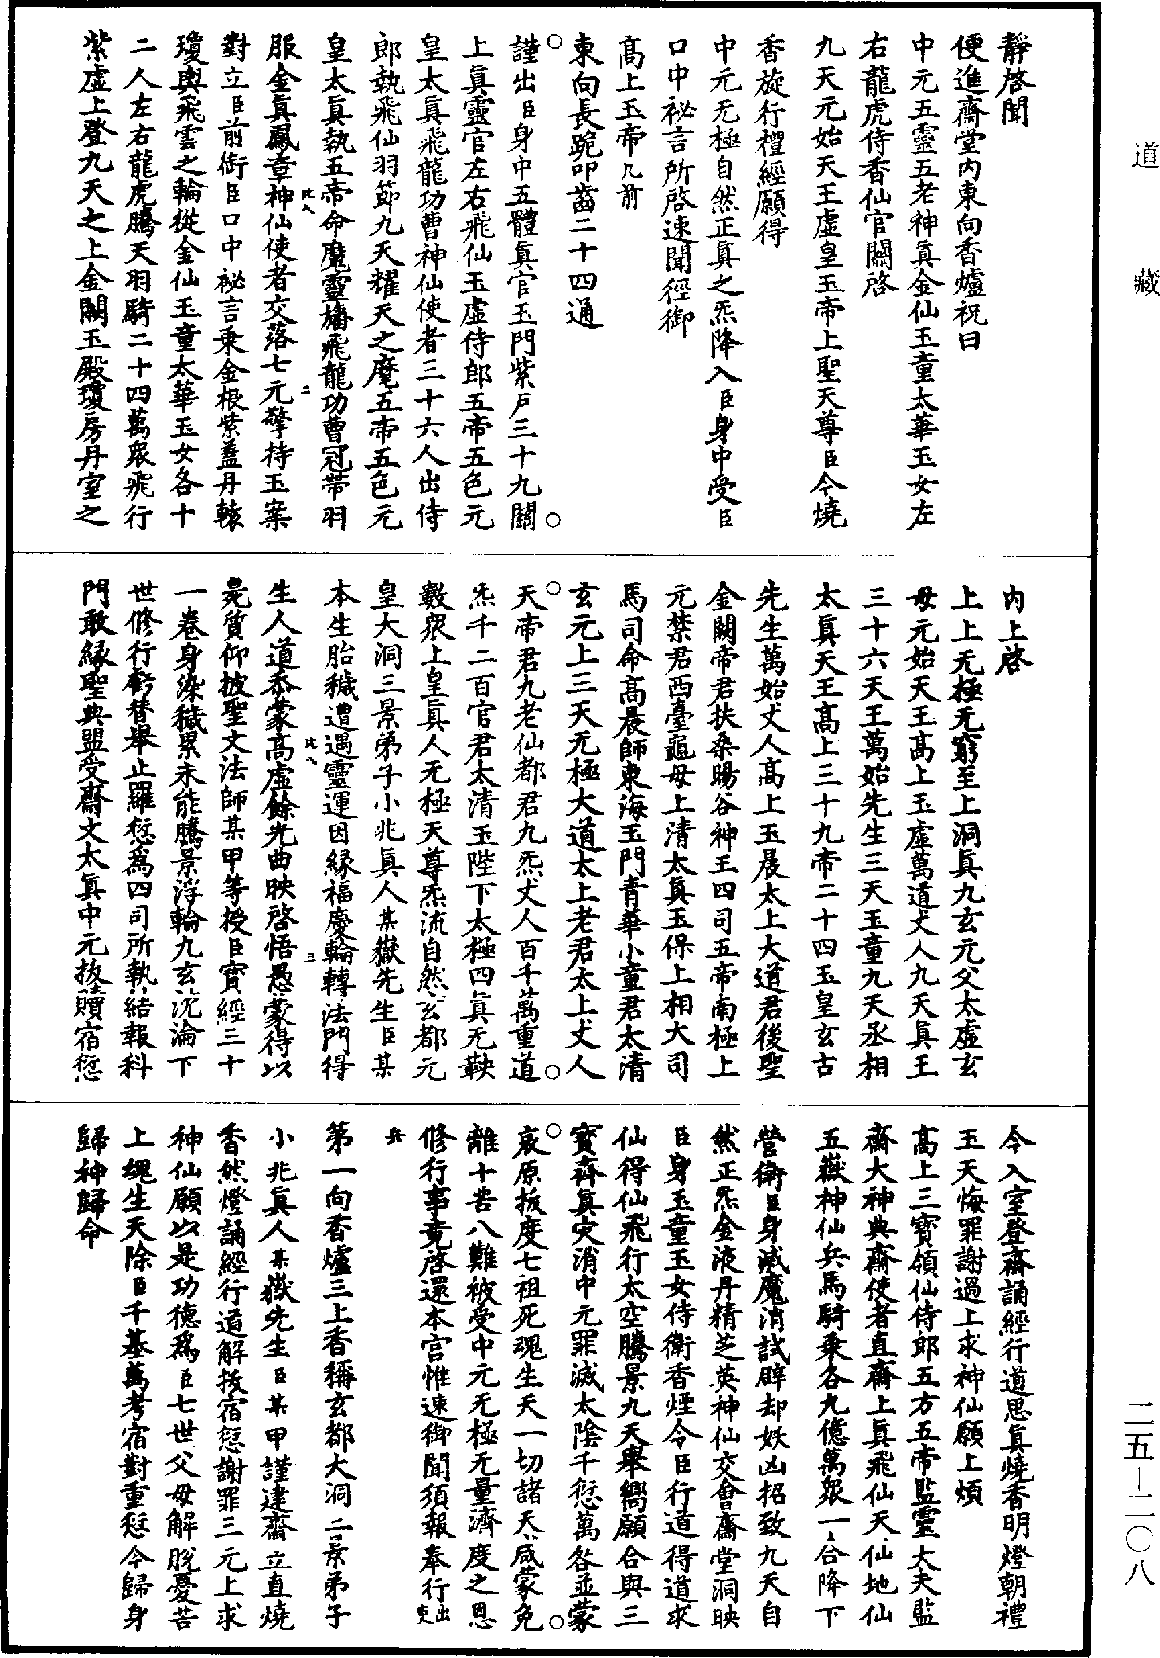 靜啓聞
便進齋堂內東向香爐祝曰
中元五靈五老神真金仙玉童太華玉女左
右龍虎侍香仙官關啓
九天元始天王虛皇玉帝上聖天尊臣今燒
香旋行禮經願得
中元无極自然正真之炁降入臣身中受臣
口中祕言所啓速聞徑御
高上玉帝几前
東向長跪叩齒二十四通
謹出臣身中五體真官玉門紫戶三十九關
上真靈官左右飛仙玉虛侍郎五帝五色元
皇太真飛龍功曹神仙使者三十六人出侍
郎執飛仙羽節九天耀天之魔五帝五色元
皇太真執五帝命魔靈旛飛龍功曹冠帶羽
服金真鳳章神仙使者交落七元擎持玉案
對立臣前銜臣口中祕言乘金根紫蓋丹轅
瓊輿飛雲之輪從金仙玉童太華玉女各十
二人左右龍虎騰天羽騎二十四萬眾飛行
紫虛上登九天之上金闕玉殿瓊房丹室之
內上啓
上上无極无窮至上洞真九玄元父太虛玄
母元始天王高上玉虛萬道丈人九天真王
三十六天王萬始先生三天玉童九天丞相
太真天王高上三十九帝二十四玉皇玄古
先生萬始丈人高上玉晨太上大道君後聖
金闕帝君扶桑暘谷神王四司五帝南極上
元禁君西臺龜母上清太真玉保上相大司
馬司命高晨師東海玉門青華小童君太清
玄元上三天无極大道太上老君太上丈人
天帝君九老仙都君九炁丈人百千萬重道
炁千二百官君太清玉陛下太極四真无鞅
數眾上皇真人无極天尊炁流自然玄都元
皇大洞三景弟子小兆真人某嶽先生臣某
本生胎穢遭遇靈運因緣福慶輪轉法門得
生人道忝蒙高虛餘光曲映啓悟愚蒙得以
是質仰披聖文法師某甲等授臣寶經三十
一卷身染穢累未能騰景浮輪九玄沉淪下
世修行虧替舉止罹愆爲四司所執結報科
門敢緣聖典盟受齋文太真中元拔贖宿愆
今入室登齋誦經行道思真燒香明燈朝禮
玉天悔罪謝過上求神仙願上煩
高上三寶領仙侍郎五方五帝監靈大夫監
齋大神典齋使者直齋上真飛仙天仙地仙
五嶽神仙兵馬騎乘各九億萬眾一合降下
營衛臣身滅魔消試辟却妖凶招致九天自
然正炁金液丹精芝英神仙交會齋堂洞映
臣身玉童玉女侍衛香煙令臣行道得道求
仙得仙飛行太空騰景九天舉嚮願合與三
寶齊真灾消中元罪滅太陰千愆萬咎並蒙
哀原拔度七祖死魂生天一切諸天咸蒙免
離十苦八難被受中元无極无量濟度之恩
修行事竟啓還本宮惟速御聞須報奉行出吏
兵
第一向香爐三上香稱玄都大洞三景弟子
小兆真人某嶽先生臣某甲謹建齋立直燒
香然燈誦經行道解拔宿愆謝罪三元上求
神仙願以是功德爲臣七世父母解脫憂苦
上魂生天除臣千基萬考宿對重愆今歸身
歸神歸命
道藏
二五—二〇八